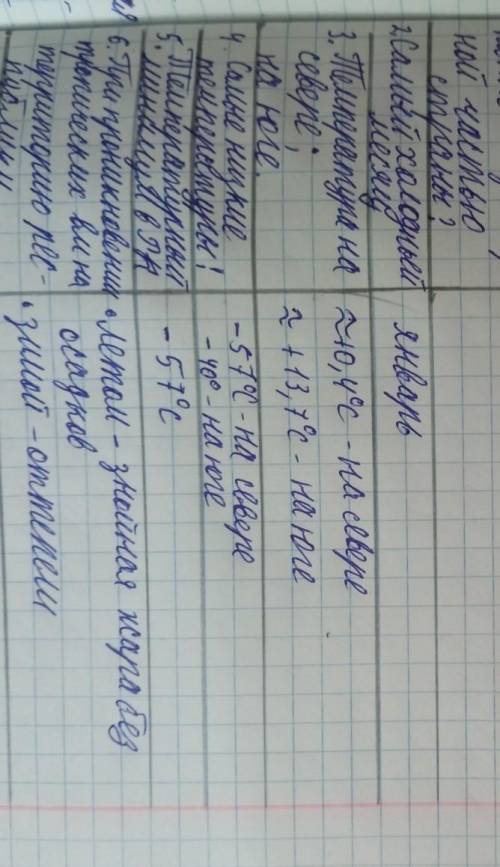 ной частью
страны?
2. Самый холодный
месяц
январь
3. Температура на
севере,
на юге.
≈ +0,4°С - на севере
≈ +13,7°С - на юге
4. Самые низкие
температуры!
-57°С - на севере
-40° - на юге
5. Температурный
минимум в РК
-57°С
6. При проникновении
тропических вм на
территорию рес-
публики
• летом - знойная жара без
осадков
• зимой - оттепели